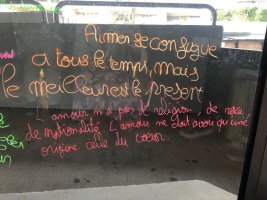 Aimer se conjugue
a tous le temps, mais
le meilleur est le present
L'amour n'a pas de religion, de race,
de nationalité. L'amour ne doit avoir qu'une
origine celle du cœur.